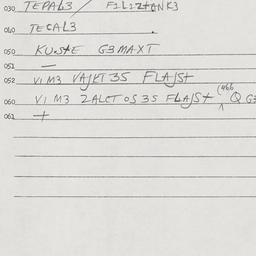 030 TEPAL3 / FILIZTANK3
040 TECAL3 .
050 KUSTE G3MAXT
051 —
052 VIM3 VAJKT3S FLAJST
060 VIM3 ZALCTOS3S FLAJST (466 Q G3
061 +